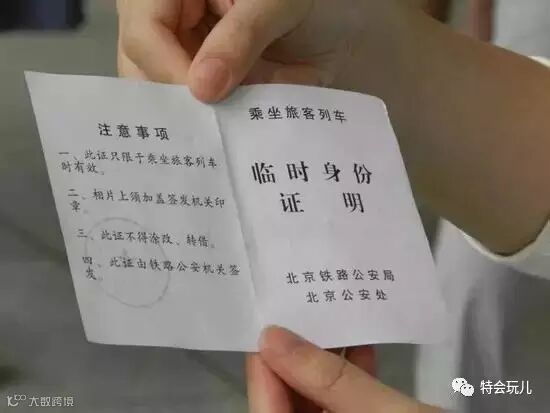 注意事项
一、此证只限于乘坐旅客列车
时有效。
二、相片上须加盖签发机关印
章。
三、此证不得涂改、转借。
四、此证由铁路公安机关签
发。
乘坐旅客列车
临时身份
证明
北京铁路公安局
北京公安处
特会玩儿
大数跨境